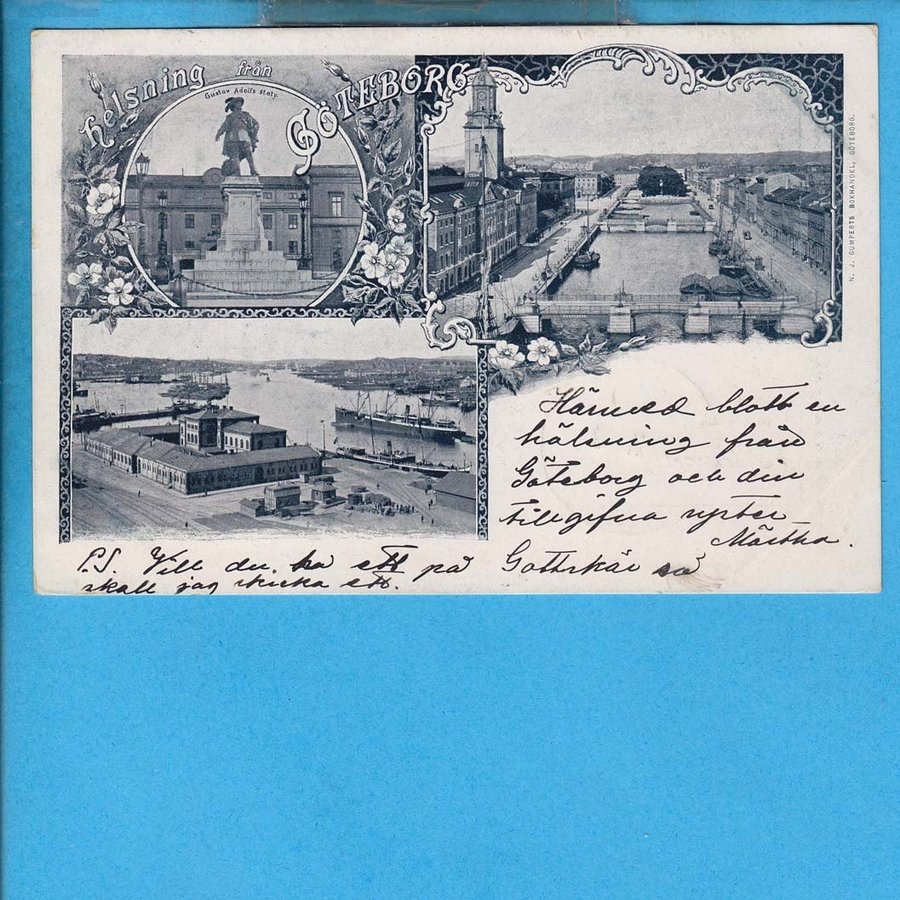 Helsning från GÖTEBORG
Gustav Adolfs staty.
N. J. GUMPERTS BOKHANDEL, GÖTEBORG.
Härmed blott en
hälsning från
Göteborg och din
tillgifna syster
Märtha.
P.S. Vill du ha ett på Gottskär så
skall jag skicka ett.